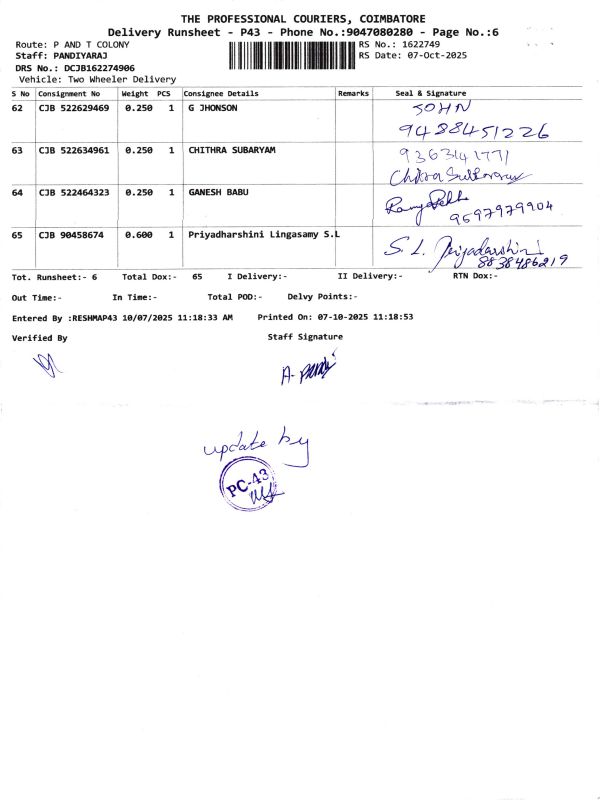 THE PROFESSIONAL COURIERS, COIMBATORE
Delivery Runsheet - P43 - Phone No.:9047080280 - Page No.:6
Route: P AND T COLONY RS No.: 1622749
Staff: PANDIYARAJ RS Date: 07-Oct-2025
DRS No.: DCJB162274906
Vehicle: Two Wheeler Delivery
S No Consignment No Weight PCS Consignee Details Remarks Seal & Signature
62 CJB 522629469 0.250 1 G JHONSON JOHN
9488451226
63 CJB 522634961 0.250 1 CHITHRA SUBARYAM 9363141771
Chitra
64 CJB 522464323 0.250 1 GANESH BABU
9597979904
65 CJB 90458674 0.600 1 Priyadharshini Lingasamy S.L S. L. Priyadarshini
8838486219
Tot. Runsheet:- 6 Total Dox:- 65 I Delivery:- II Delivery:- RTN Dox:-
Out Time:- In Time:- Total POD:- Delvy Points:-
Entered By :RESHMAP43 10/07/2025 11:18:33 AM Printed On: 07-10-2025 11:18:53
Verified By Staff Signature
A. Pandi
update by
PC-43